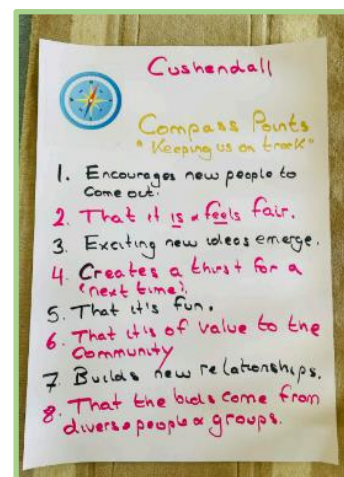 Cushendall
Compass Points
"Keeping us on track"
1. Encourages new people to
come out.
2. That it is & feels fair.
3. Exciting new ideas emerge.
4. Creates a thirst for a
'next time'.
5. That it's fun.
6. That it is of value to the
Community
7. Builds new relationships.
8. That the bids come from
diverse people & groups.